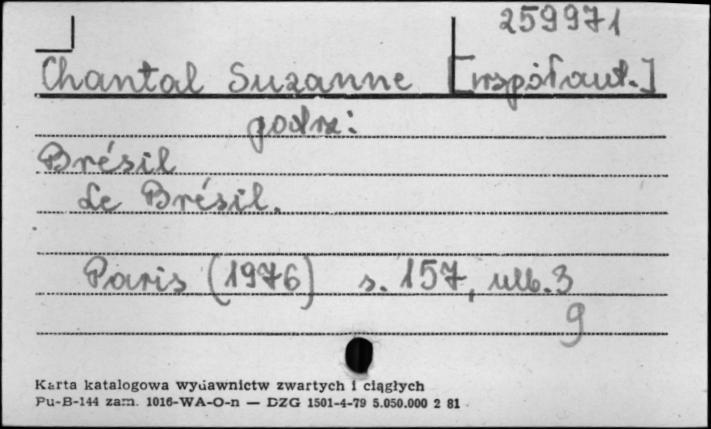 259971
Chantal Suzanne [współaut.]
podrz:
Brésil
Le Brésil.
Paris (1976) s. 157, ulb. 3
9
Karta katalogowa wydawnictw zwartych i ciągłych
Pu-B-144 zam. 1016-WA-O-n — DZG 1501-4-79 5.050.000 2 81